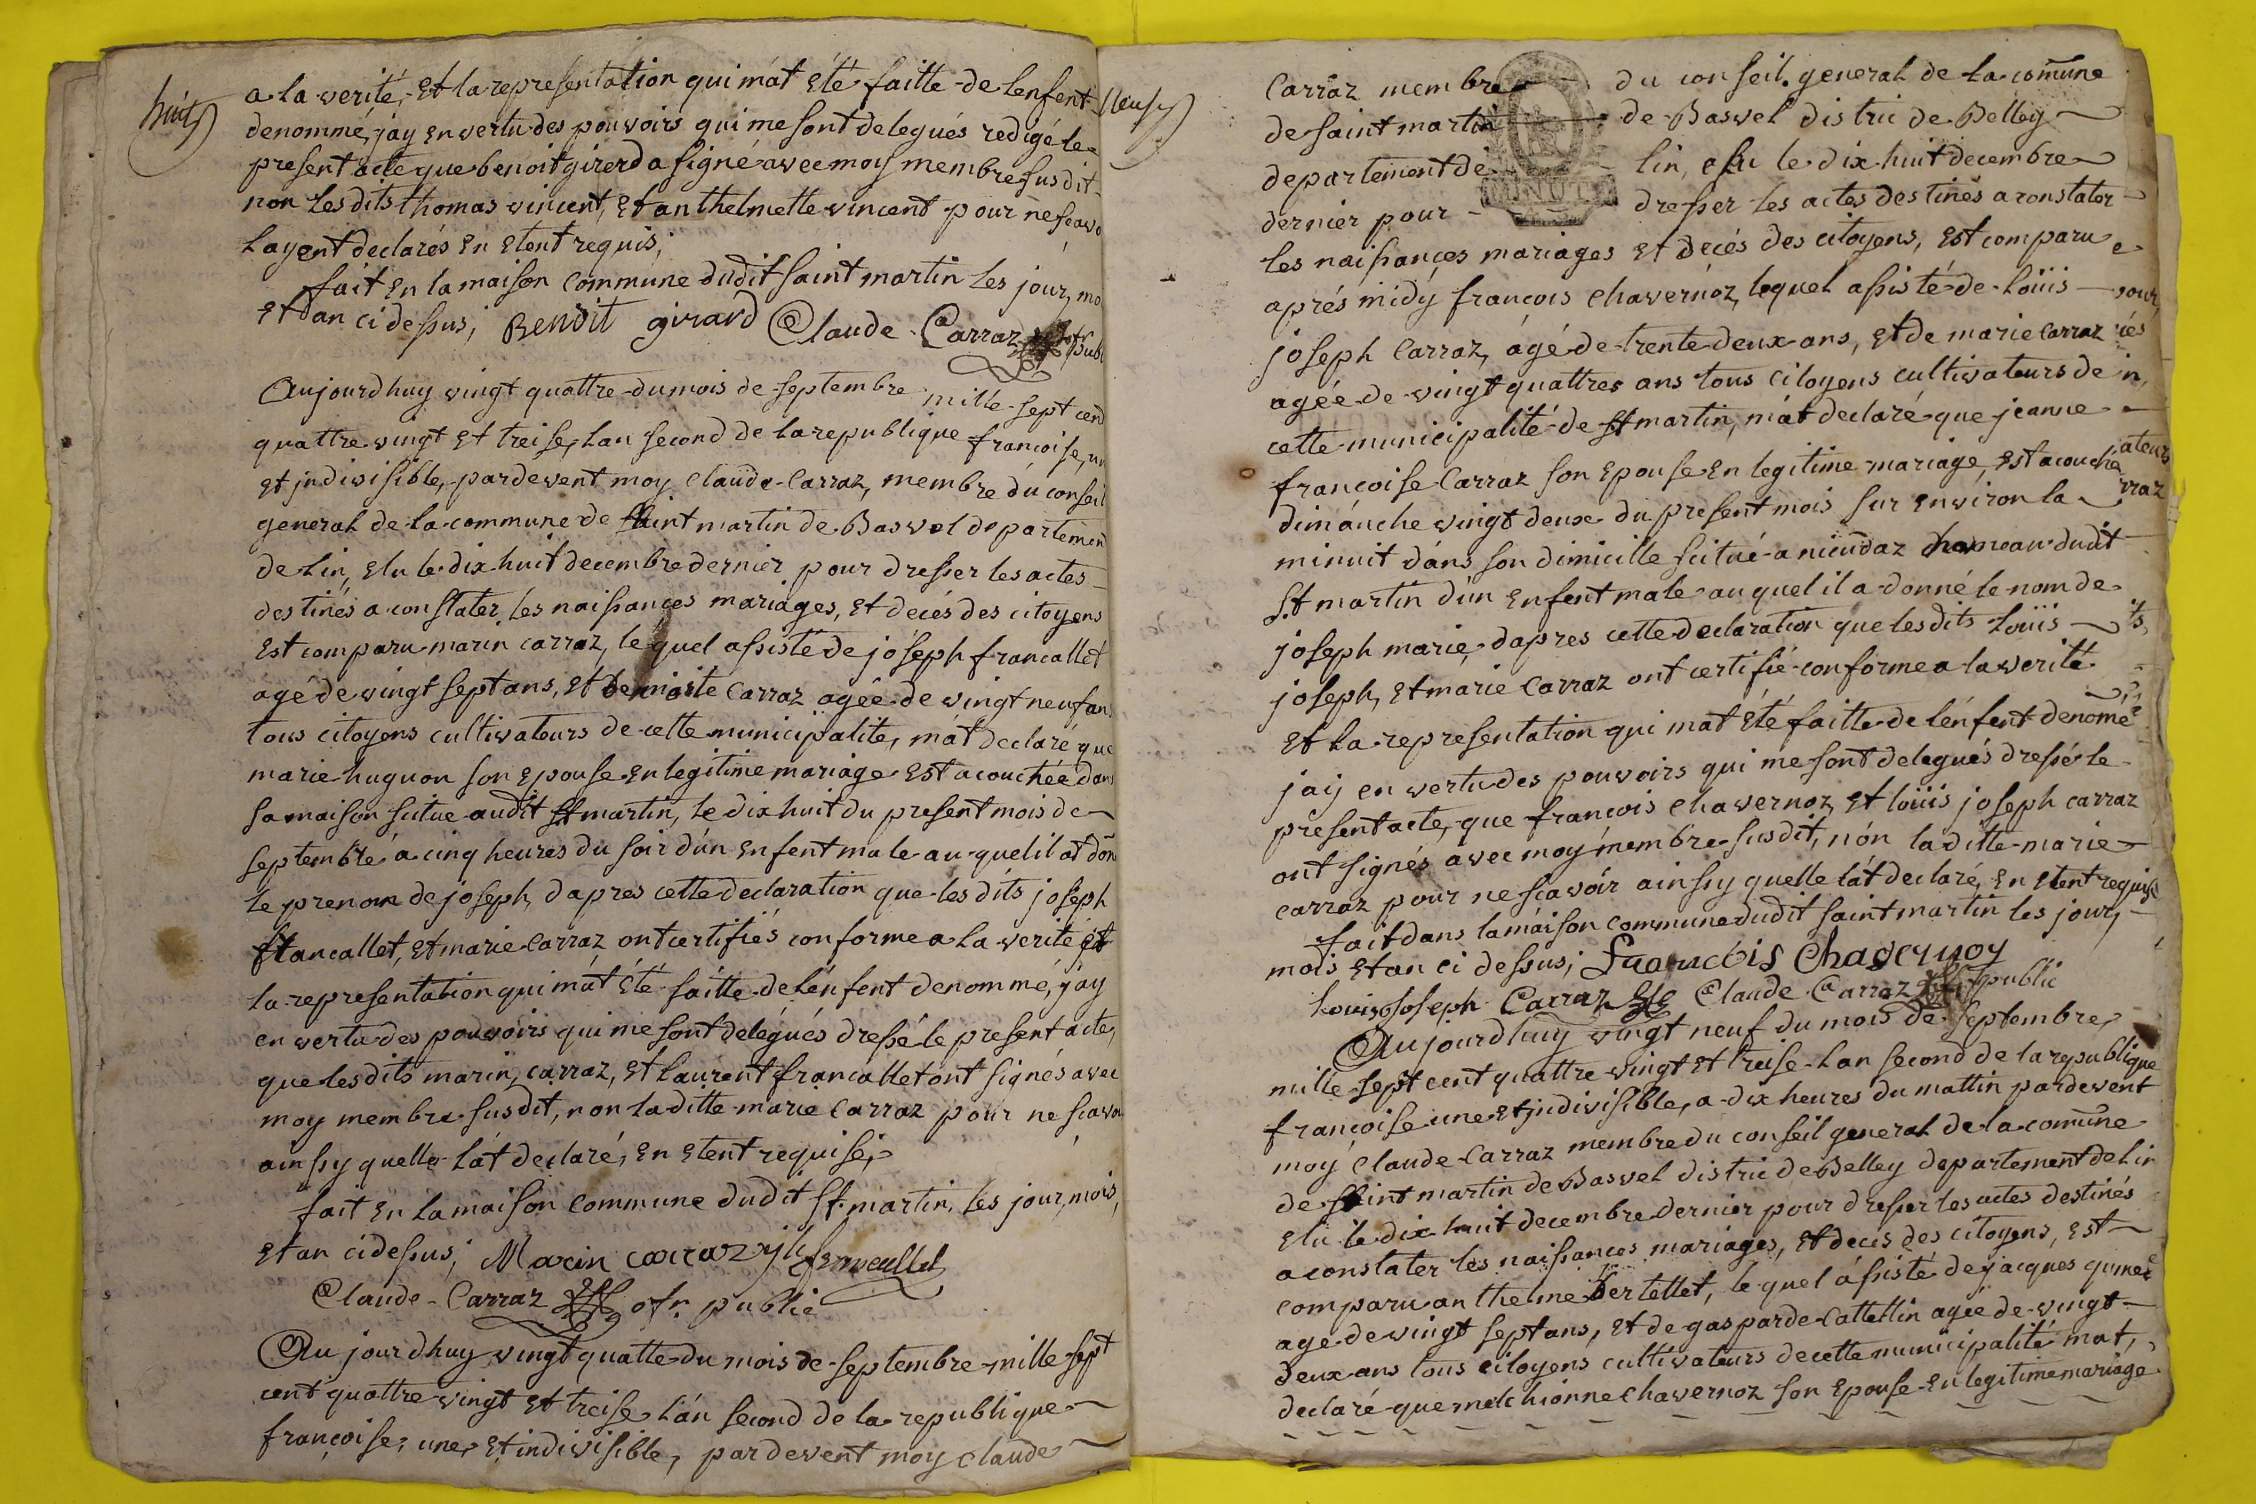 huit
a la verité, Et la representation qui m'at Eté faitte de lenfent
denommé, jay En vertu des pouvoirs qui me sont delegués redigé le
present acte que benoit girerd a signé avec moy membre susdit
non lesdits thomas vincent, Et anthelmette vincent pour ne scavo
layent declarés En Etent requis,
fait En la maison Commune dudit saint martin les jour, mo
Et an ci dessus; Benoit girard Claude Carraz ofr publ
Aujourdhuy vingt quattre du mois de septembre mille sept cend
quattre vingt Et treise, lan second de la republique francoise, un
Et jndivisible, pardevent moy Claude Carraz, membre du conseil
general de la commune de saint martin de Bavvel departement
de Lin, Elu le dix huit decembre dernier pour dresser les actes
destinés a constater les naissances mariages, Et decés des citoyens
Est comparu marin carraz, lequel assisté de joseph francallet
agé de vingt sept ans, Et de marie Carraz agée de vingt neuf ans
tous citoyens cultivateurs de cette municipalite, m'at declaré que
marie huguon son Epouse En legitime mariage Est acouchée dans
sa maison scitue audit St martin, le dix huit du present mois de
septembre a cinq heures du soir d'un Enfent male au quel il at don
le prenom de joseph, dapres cette declaration que les dits joseph
francallet, Et marie Carraz ont certifiés conforme a la verité Et
la representation qui m'at Eté faitte de lénfent denommé, jay
en vertu des pouvoirs qui me sont delégués dressé le present acte,
que lesdits marin, carraz, Et laurent francallet ont signés avec
moy membre susdit, non la ditte marie Carraz pour ne scavo
ainssy quelle lát declaré, En Etent requise,
fait En la maison Commune dudit St martin, les jour, mois,
Et an cidessus; Marin carraz
Claude Carraz ofr public
Aujourdhuy vingt quatte du mois de septembre mille sept
cent quattre vingt Et treise lán second de la republique
françoise, une, Et indivisible, pardevent moy Claude
neuf
Carraz membre du conseil general de la comune
de saint martin de Bavvel distric de Belley
departement de lin, elu le dix huit decembre
MINUTE
dernier pour dresser les actes destinés a constater
les naissances mariages Et decés des citoyens, Est comparu
aprés midy françois Chavernoz, lequel assisté de loüis
joseph Carraz, ágé de trente deux ans, Et de marie Carraz
agée de vingt quattres ans tous Citoyens cultivateurs de
cette municipalité de St martin, m'at declaré que jeanne
francoise Carraz son Epouse En legitime mariage, Est acouchée
dimánche vingt deux du present mois sur Environ la
minuit dáns son dimicille scitué a nieudaz hameau dudit
St martin d'un Enfent male au quel il a donné le nom de
joseph marie, dapres cette declaration que lesdits loüis
joseph, Et marie Carraz ont certifié conforme a la verité
Et la representation qui mat Eté faitte de lénfent denomé
jay en vertu des pouvoirs qui me sont delegués dressé le
present acte, que françois Chavernoz, Et loüis joseph carraz
ont signés avec moy membre susdit, nón la ditte marie
carraz pour ne scavoir ainssy quelle lát declaré, En Etent requise
fait dans la maison Commune dudit saint martin les jour,
mois Et an ci dessus; francois Chavernoy
Louis Joseph Carraz Claude Carraz public
Aujourdhuy vingt neuf du mois de septembre
mille sept cent quattre vingt Et treise lan second de la republique
françoise une, Et jndivisible, a dix heures du mattin pardevent
moy Claude Carraz membre du conseil general de la comune
de saint martin de Bavvel distric de Belley departement de Lin
Elu le dix huit decembre dernier pour dresser les actes destinés
a constater les naissances mariages, Et decés des citoyens, Est
comparu anthelme bertellet, le quel assisté de jacques
age de vingt sept ans, Et de gasparde Cattellin agée de vingt
deux ans tous citoyens cultivateurs de cette municipalité mat,
declaré que melchionne Chavernoz son Epouse En legitime mariage